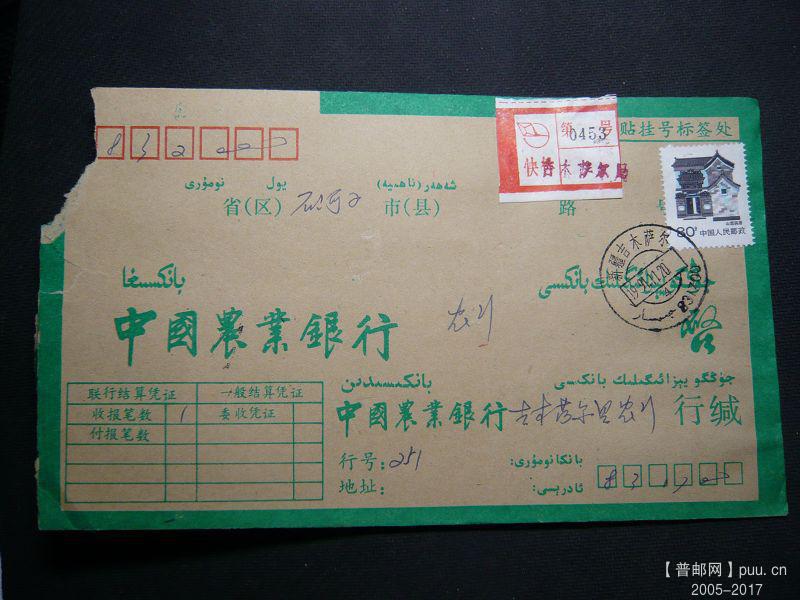 第 号
0453
快件
吉木萨尔局
贴挂号标签处
8 3 2 0 0 0
شەھەر (ناھىيە) يول نومۇرى
省(区) 石河子 市(县) 路 号
80分 中国人民邮政
新疆吉木萨尔
831700
بانكىسىغا
中國農業銀行 农行 啓
联行结算凭证 一般结算凭证
收报笔数 1 委收凭证
付报笔数
جۇڭگو يېزا ئىگىلىك بانكىسى بانكىسىدىن
中國農業銀行 吉木萨尔县农行 行缄
行号: 251 بانكا نومۇرى:
地址: ئادرېسى: 8 3 1 7 0 0
【普邮网】puu.cn
2005-2017